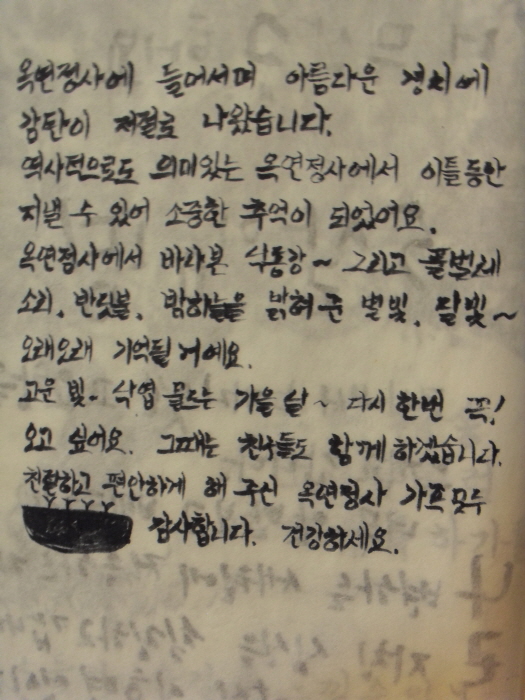 옥연정사에 들어서며 아름다운 경치에
감탄이 저절로 나왔습니다.
역사적으로도 의미있는 옥연정사에서 이틀동안
지낼 수 있어 소중한 추억이 되었어요.
옥연정사에서 바라본 낙동강~ 그리고 풀벌레
소리, 반딧불, 밤하늘을 밝혀준 별빛, 달빛~
오래오래 기억될 거예요.
고운 빛. 낙엽 물드는 가을 날~ 다시 한번 꼭!
오고 싶어요. 그때는 친구들도 함께 하겠습니다.
친절하고 편안하게 해 주신 옥연정사 가족 모두
감사합니다. 건강하세요.